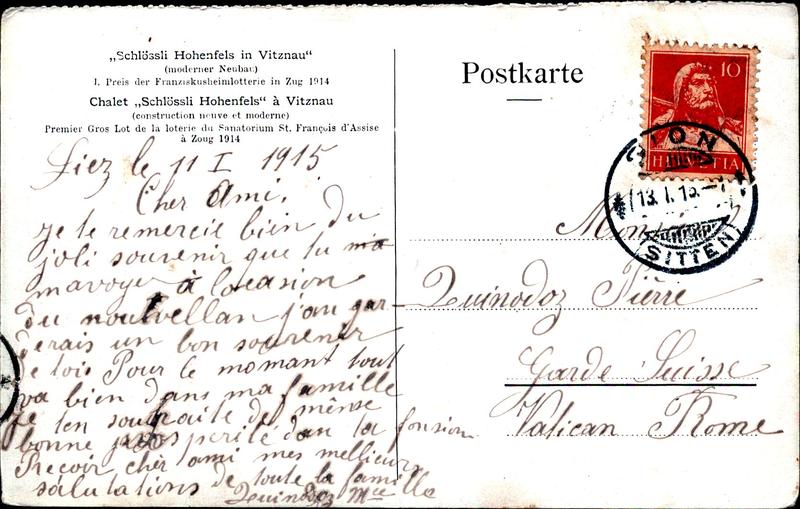 „Schlössli Hohenfels in Vitznau“
(moderner Neubau)
1. Preis der Franziskusheimlotterie in Zug 1914
Chalet „Schlössli Hohenfels“ à Vitznau
(construction neuve et moderne)
Premier Gros Lot de la loterie du Sanatorium St. François d'Assise
à Zoug 1914
Liez le 11 I 1915
Cher Ami.
je te remercie bien du
joli souvenir que tu ma
mavoyer à locasion
du nouvellan j'an gar-
derais un bon souvenir
de toi Pour le momant tout
va bien dans ma famille
je ten souhaite de même
bonne prosperité dan ta fonsion
Reçoir cher ami mes mellieurs
salutations de toute la famille
Quinodoz Mce
Postkarte
10
HELVETIA
SION
13. I. 15.
(SITTEN)
Quinodoz Pierre
Garde Suisse
Vatican Rome